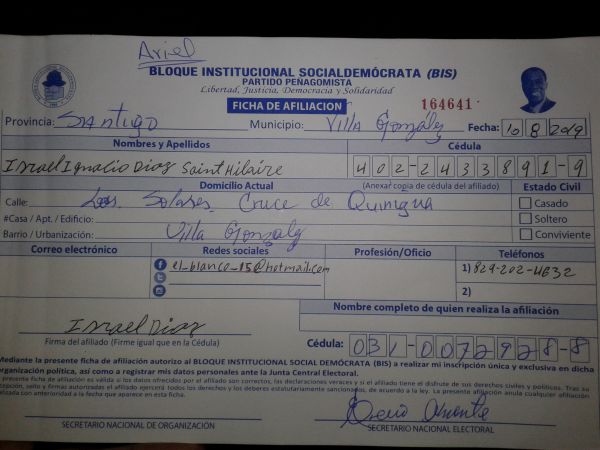 Ariel
BLOQUE INSTITUCIONAL SOCIALDEMÓCRATA (BIS)
PARTIDO PEÑAGOMISTA
Libertad, Justicia, Democracia y Solidaridad
FICHA DE AFILIACION
164641
Provincia: Santigo Municipio: Villa González Fecha: 10 8 2019
Nombres y Apellidos Cédula
Israel Ignacio Dioz Saint Hilaire 402-2433891-9
Domicilio Actual (Anexar copia de cédula del afiliado) Estado Civil
Calle: Los Solares Cruce de Quinigua Casado
#Casa / Apt. / Edificio: Soltero
Barrio / Urbanización: Villa Gonzalez Conviviente
Correo electrónico Redes sociales Profesión/Oficio Teléfonos
el_blanco_15@hotmail.com 1) 829-202-4632
2)
Nombre completo de quien realiza la afiliación
Israel Dioz
Firma del afiliado (Firme igual que en la Cédula) Cédula: 031-0072928-8
Mediante la presente ficha de afiliación autorizo al BLOQUE INSTITUCIONAL SOCIAL DEMÓCRATA (BIS) a realizar mi inscripción única y exclusiva en dicha
organización política, así como a registrar mis datos personales ante la Junta Central Electoral.
presente ficha de afiliación es válida si los datos ofrecidos por el afiliado son correctos, las declaraciones veraces y si el afiliado tiene el disfrute de sus derechos civiles y políticos. Tras su
cepción, sello y firmas autorizadas el afiliado ejercerá todos los derechos y los deberes estatutariamente sancionados, de acuerdo a la ley. La presente afiliación anula cualquier afiliación
realizada con anterioridad a la fecha que aparece en esta ficha.
SECRETARIO NACIONAL DE ORGANIZACIÓN SECRETARIO NACIONAL ELECTORAL